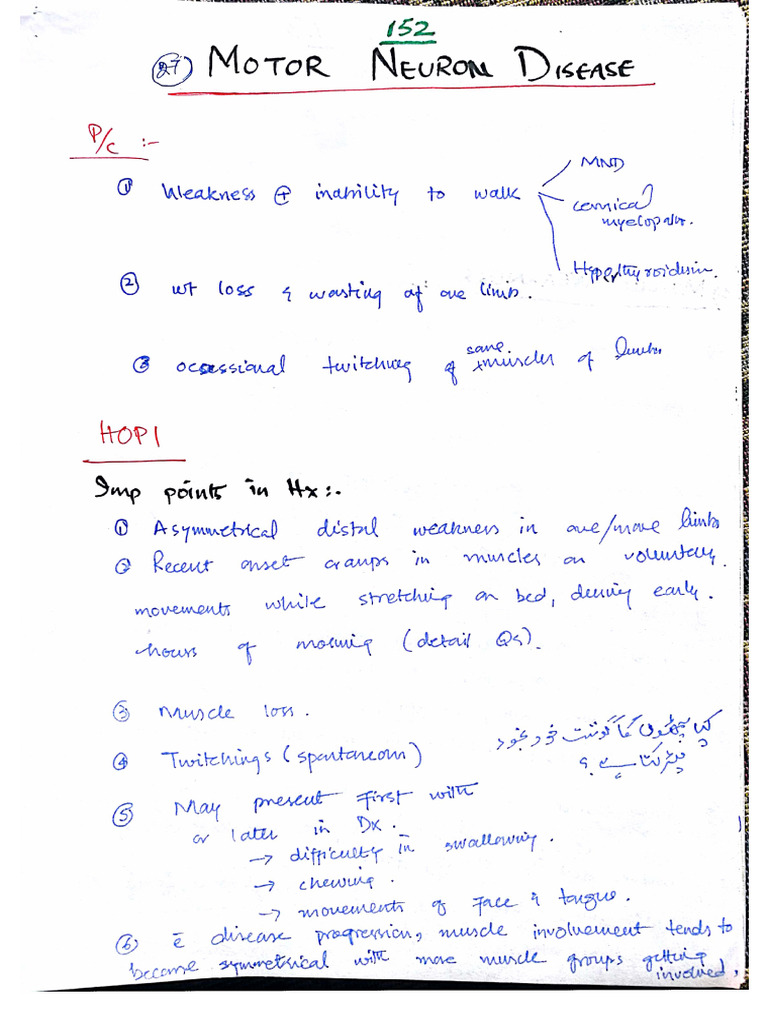 152
27) MOTOR NEURON DISEASE
P/C :-
① Weakness + inability to walk
MND
cervical
myelopathy.
Hyperthyroidism.
② wt loss & wasting of one limb.
③ occessional twitching of some muscles of limbs
HOPI
Imp points in Hx:-
① Asymmetrical distal weakness in one/more limbs
② Recent onset cramps in muscles on voluntary
movements while stretching on bed, during early
hours of morning (detail Qs).
③ Muscle loss.
④ Twitchings (spontaneous)
کیا پٹھوں کا گوشت خود بخود
پھڑکتا ہے ؟
⑤ May present first with
or later in Dx.
→ difficulty in swallowing.
→ chewing.
→ movements of Face & tongue.
⑥ c̄ disease progression, muscle involvement tends to
become symmetrical with more muscle groups getting
involved,